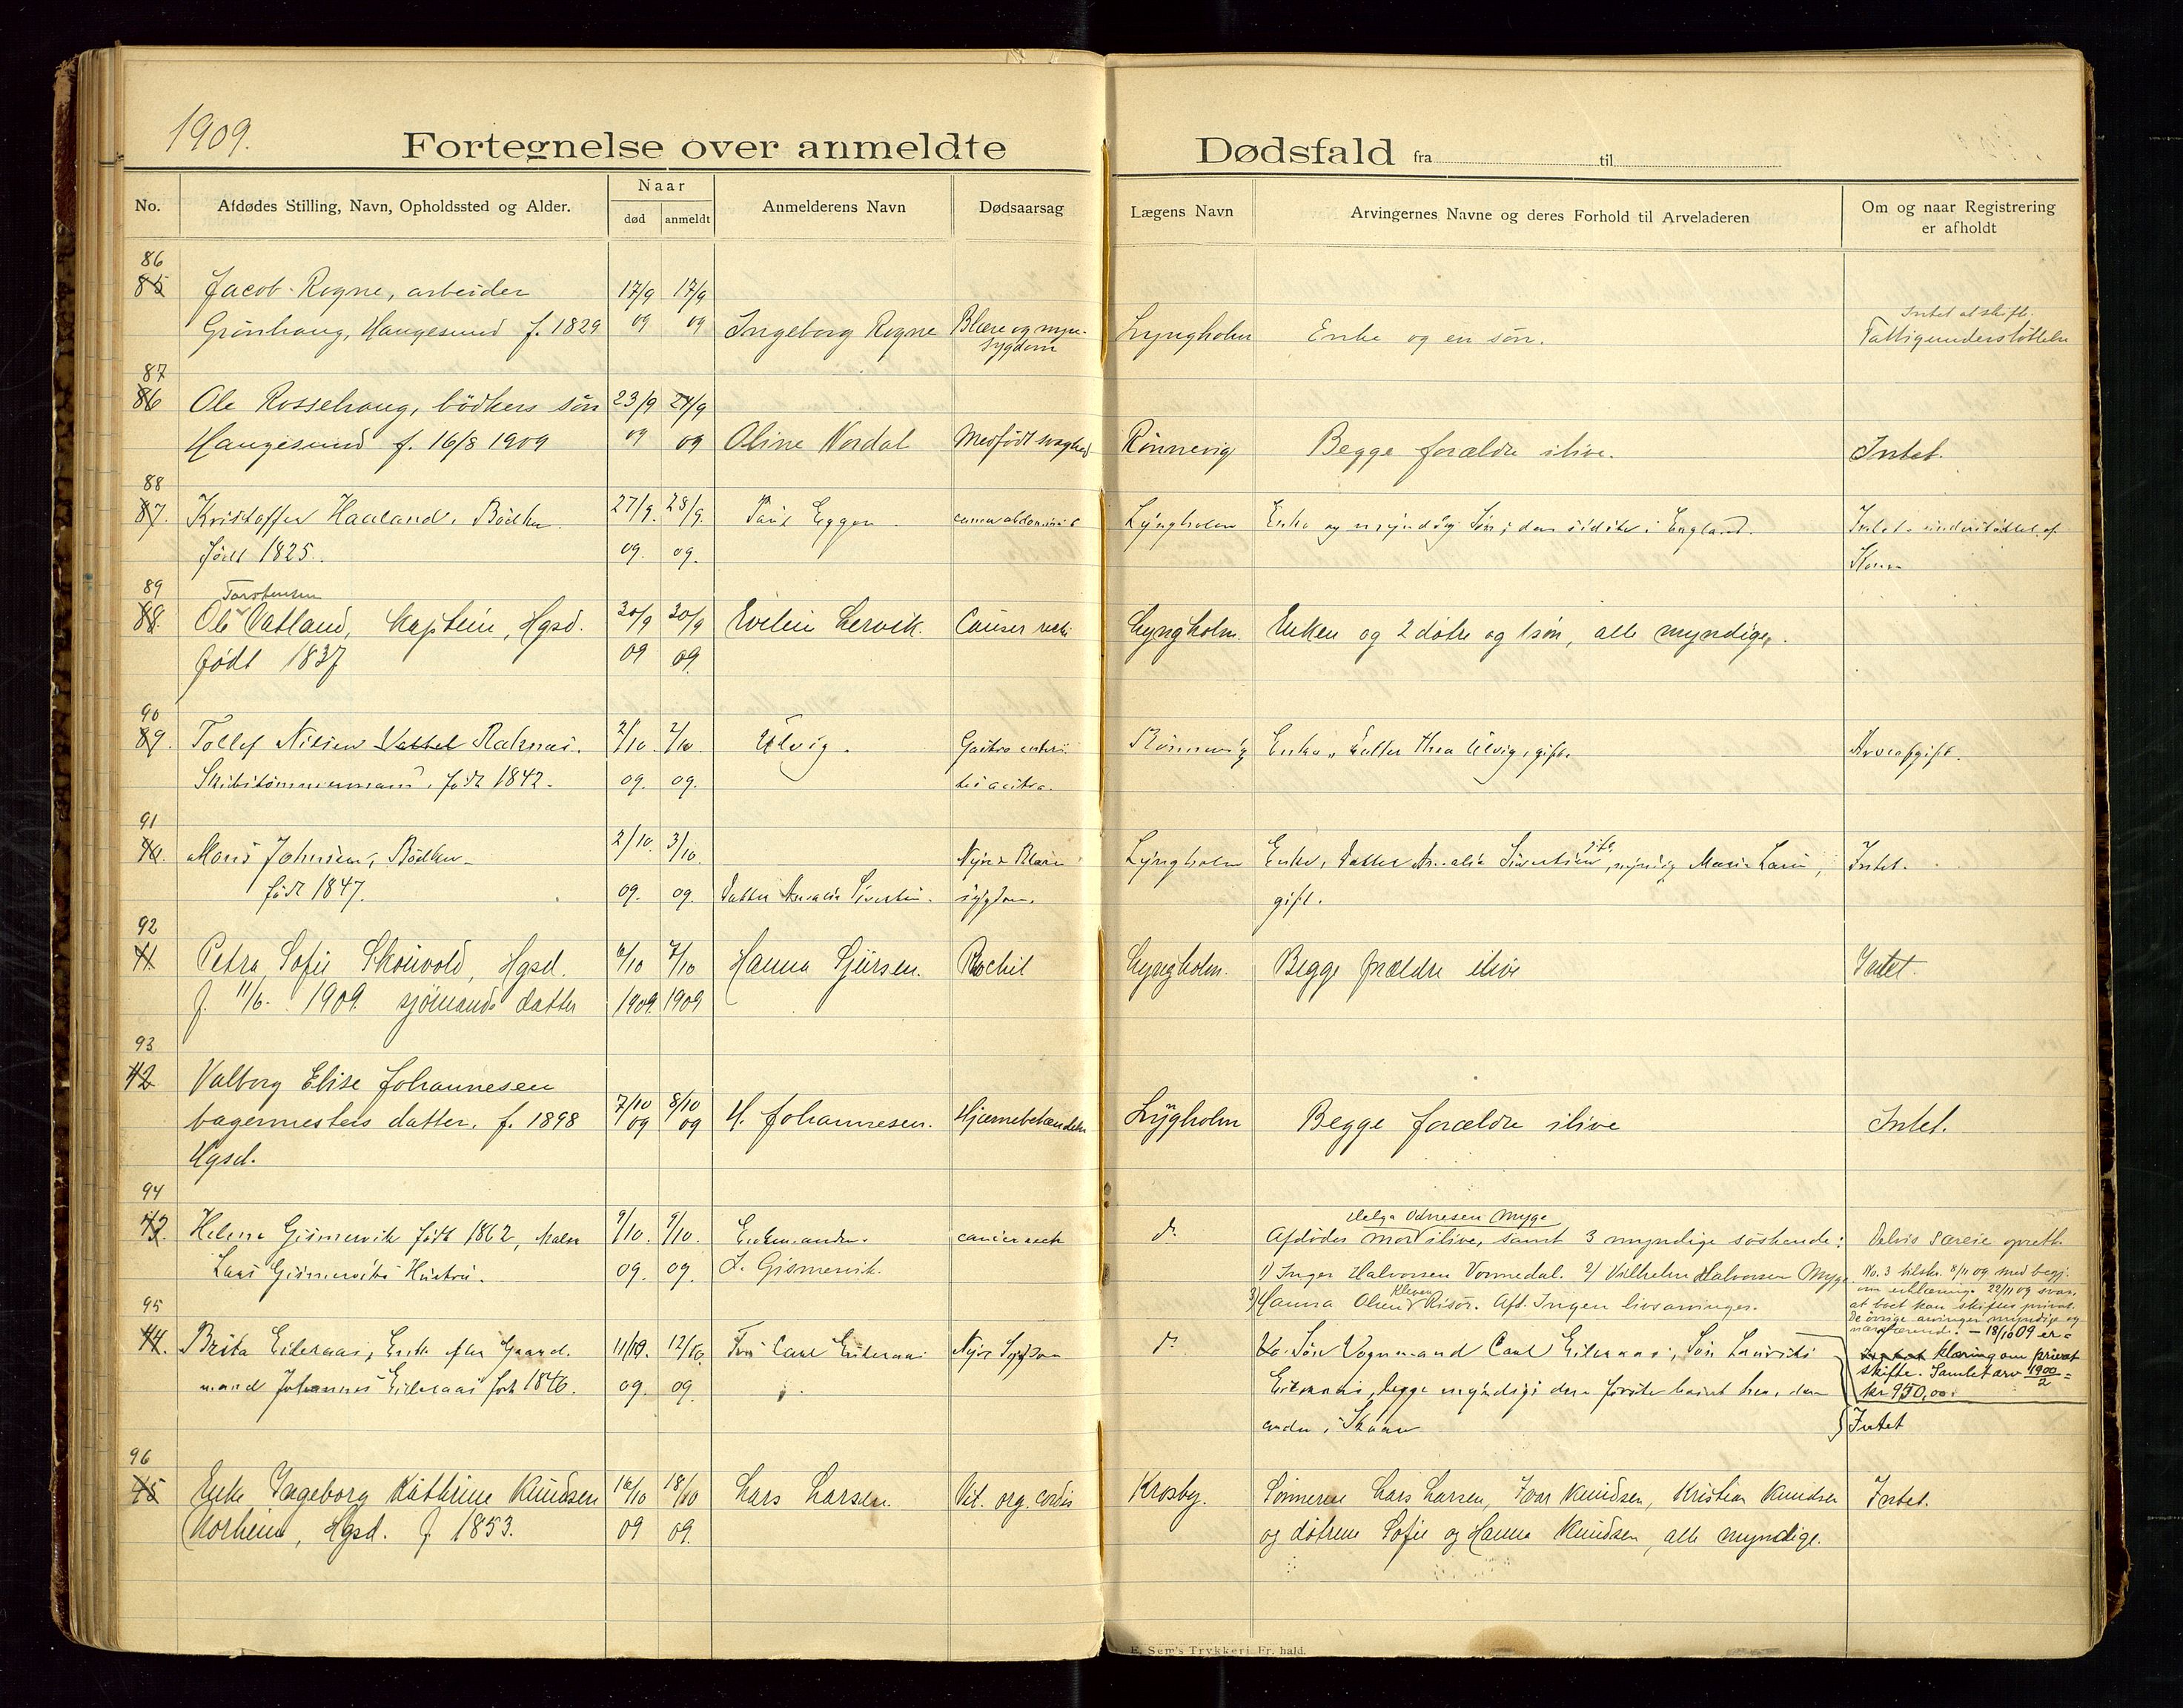 1909.
Fortegnelse over anmeldte Dødsfald fra til
No.
Afdødes Stilling, Navn, Opholdssted og Alder.
Naar
død
anmeldt
Anmelderens Navn
Dødsaarsag
Lægens Navn
Arvingernes Navne og deres Forhold til Arveladeren
Om og naar Registrering
er afholdt
86
85 Jacob Rogne, arbeider 17/9 17/9
Intet at skifte.
Grønhaug, Haugesund f. 1829 09 09 Ingeborg Rogne Blære og nyre- Lyngholm Enke og en søn. Fattigunderstøttelse
sygdom
87
86 Ole Rossehaug, bødkers søn 23/9 24/9
Haugesund f. 16/8 1909 09 09 Oline Nordal Medfødt svaghed Rønnevig Begge forældre ilive. Intet.
88
87. Kristoffer Haaland, Bødker 27/9. 28/9. Eggen Lyngholm Enke og myndig Søn, den sidste i England. Intet. understøttet af
født 1825. 09. 09.
89 Torstensen
88. Ole Vatland, Kaptein, Hgsd. 30/9 30/9 Evelin Lervik. Cancer recti Lyngholm. Enken og 2 døtre og 1 søn, alle myndige.
født 1837 09 09.
90
89. Tollef Nilsen Vattel Raknes. 2/10. 2/10. Ulvig. Gastro enteri- Rønnevig Enke, Datter Thea Ulvig, gift. Arveafgift.
Skibstømmermand, født 1842. 09. 09. tis acuta.
91
90. Mons Johnsen, Bødker 2/10. 3/10. Nyre Blære Lyngholm Enke, Datter Amalie Sivertsen gift, myndig Marie Larsen, Intet.
født 1847. 09. 09. Datter Amalie Sivertsen. sygdom. gift.
92
41 Petra Sofie Skouvold, Hgsd. 6/10 7/10 Hanna Sjursen. Rachit Lyngholm. Begge forældre ilive Intet.
f. 11/6. 1909. sjømands datter 1909. 1909
93
42 Valborg Elise Johannesen
bagermesters datter, f. 1898 7/10 09 8/10 09 H. Johannesen. Hjernebetændelse Lygholm Begge forældre ilive Intet.
Hgsd.
94
Helga Odnesen Myge
43. Helene Gismervik født 1862, Maler 9/10. 9/10. Enkemanden d. cancer recti Afdødes mor ilive, samt 3 myndige søskende: Delvis særeie oprett.
Lars Gismerviks Hustru. 09. 09. L. Gismervik. 1) Inger Halvorsen Vormedal. 2) Vilhelm Halvorsen Myge No. 3 tilskr. 8/11 09 med begj.
om erklæring. 22/11 09 svar,
3) Hanna Olsen Kleven Risør. Afd. Ingen livsarvinger. at boet kan skiftes privat.
De øvrige arvinger myndige og
nærværende. — 18/10 09 er-
95
44. Brita Eideraas, Enke efter Gaard- 11/10. 12/10. Søn Carl Eideraas Nyre Sygdom d. Søn Vognmand Carl Eideraas, Søn Laurits klæring om privat
skifte. Samlet arv 1900/2 =
mand Johannes Eideraas født 1846. 09. 09. Eideraas, begge myndige den første boende her, den kr 950,00.
anden i Skaare Intet
96
45 Enke Ingeborg Kathrine Knudsen 16/10 18/10 Lars Larsen. Vit. org. cordis Krosby. Sønnerne Lars Larsen, Ivar Knudsen, Kristian Knudsen Intet.
Norheim, Hgsd. f. 1853. 09 09. og døtrene Sofie og Hanna Knudsen, alle myndige.
E. Sem's Trykkeri Fr. hald.